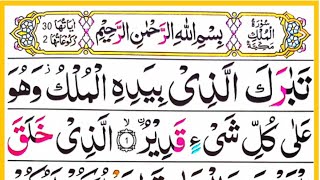 سُوْرَةُ الْمُلْكِ مَكِّيَّةٌ
بِسْمِ اللّٰهِ الرَّحْمٰنِ الرَّحِيْمِ
اٰيَاتُهَا 30
رُكُوْعَاتُهَا 2
تَبٰرَكَ الَّذِىْ بِيَدِهِ الْمُلْكُ وَهُوَ
عَلٰى كُلِّ شَىْءٍ قَدِيْرُ ۙ﴿۱﴾ اۨلَّذِىْ خَلَقَ